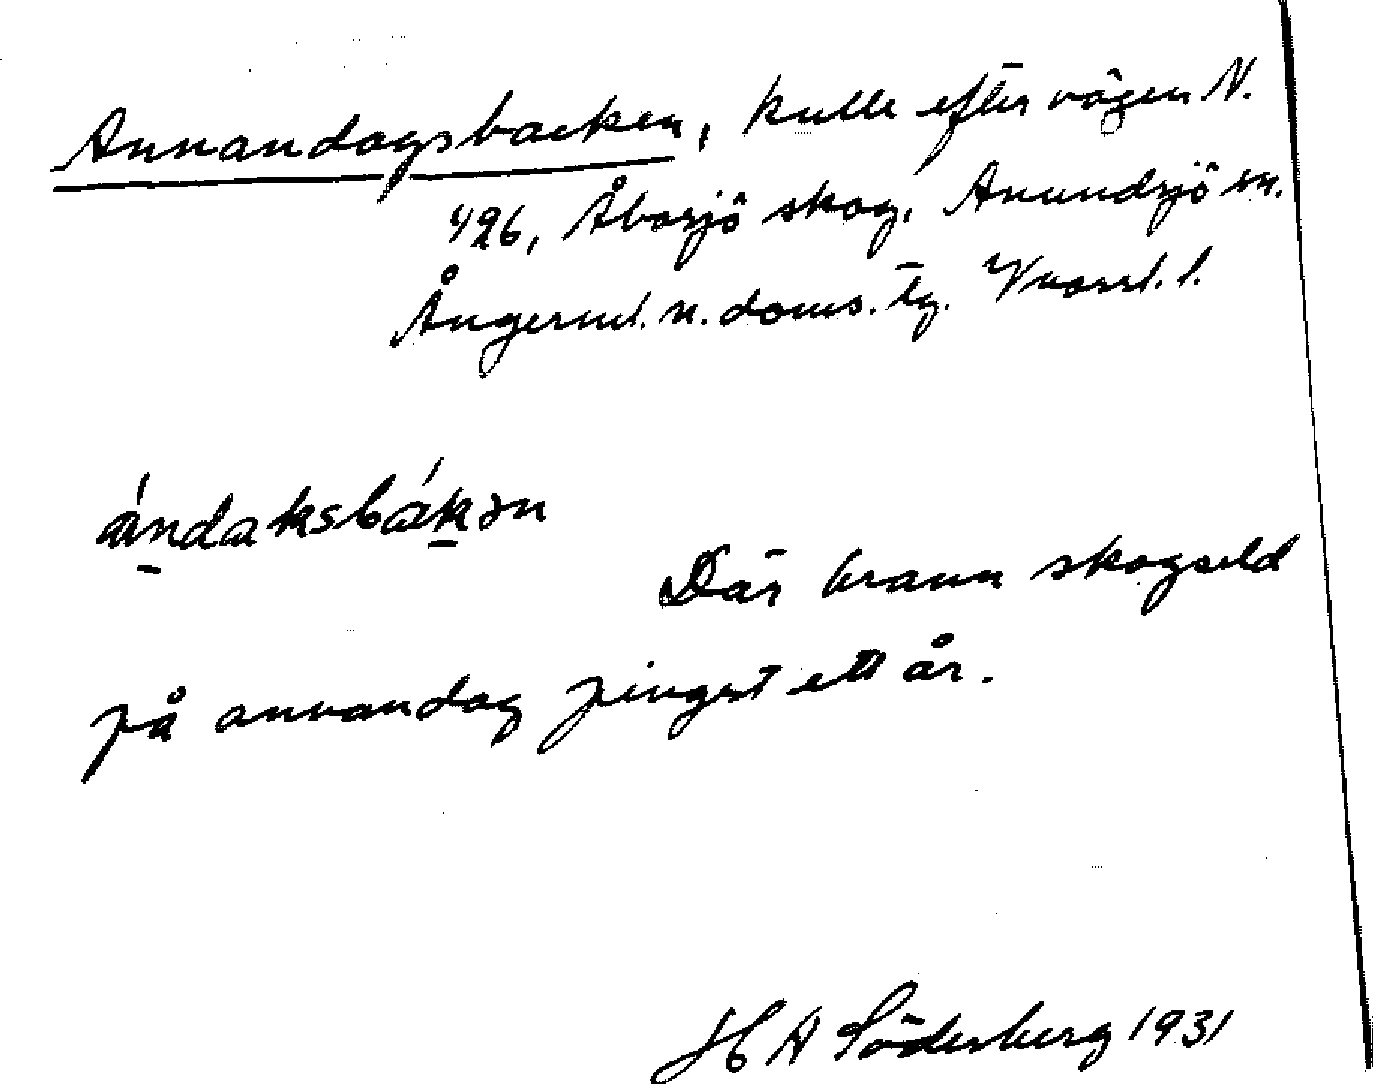 Annandagsbacken, kulle efter vägen N.
426, Åbosjö skog, Anundsjö sn.
Ångerml. n. doms. tg. Vnorrl. l.
ándaksbákən
Där brann skogseld
på annandag pingst ett år.
H A Söderberg 1931